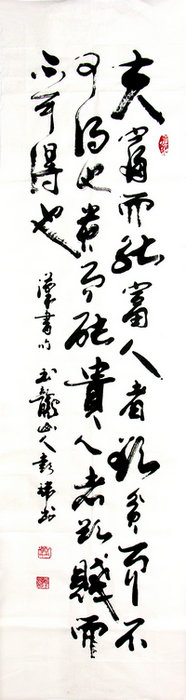 夫富而能富人者欲貧而不
可得也貴而能貴人者欲賤而
不可得也
漢書句 玉龍山人彭